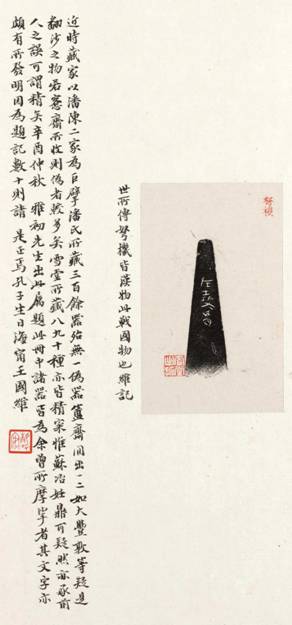 弩機
世所傳弩機皆漢物此戰國物也維記
近時藏家以潘陳二家為巨擘潘氏所藏三百餘器絕無一偽器簠齋間出一二如大豐敦等疑是
翻沙之物若愙齋所收則偽者較多矣雪堂所藏八九十種亦皆精寀惟蘇冶妊鼎可疑然亦承前
人之誤可謂精矣辛酉仲秋 雅初先生出此屬題此冊中諸器皆為余曾所摩挲者其文字亦
頗有所發明因為題記數十則請 是正焉孔子生日海甯王國維